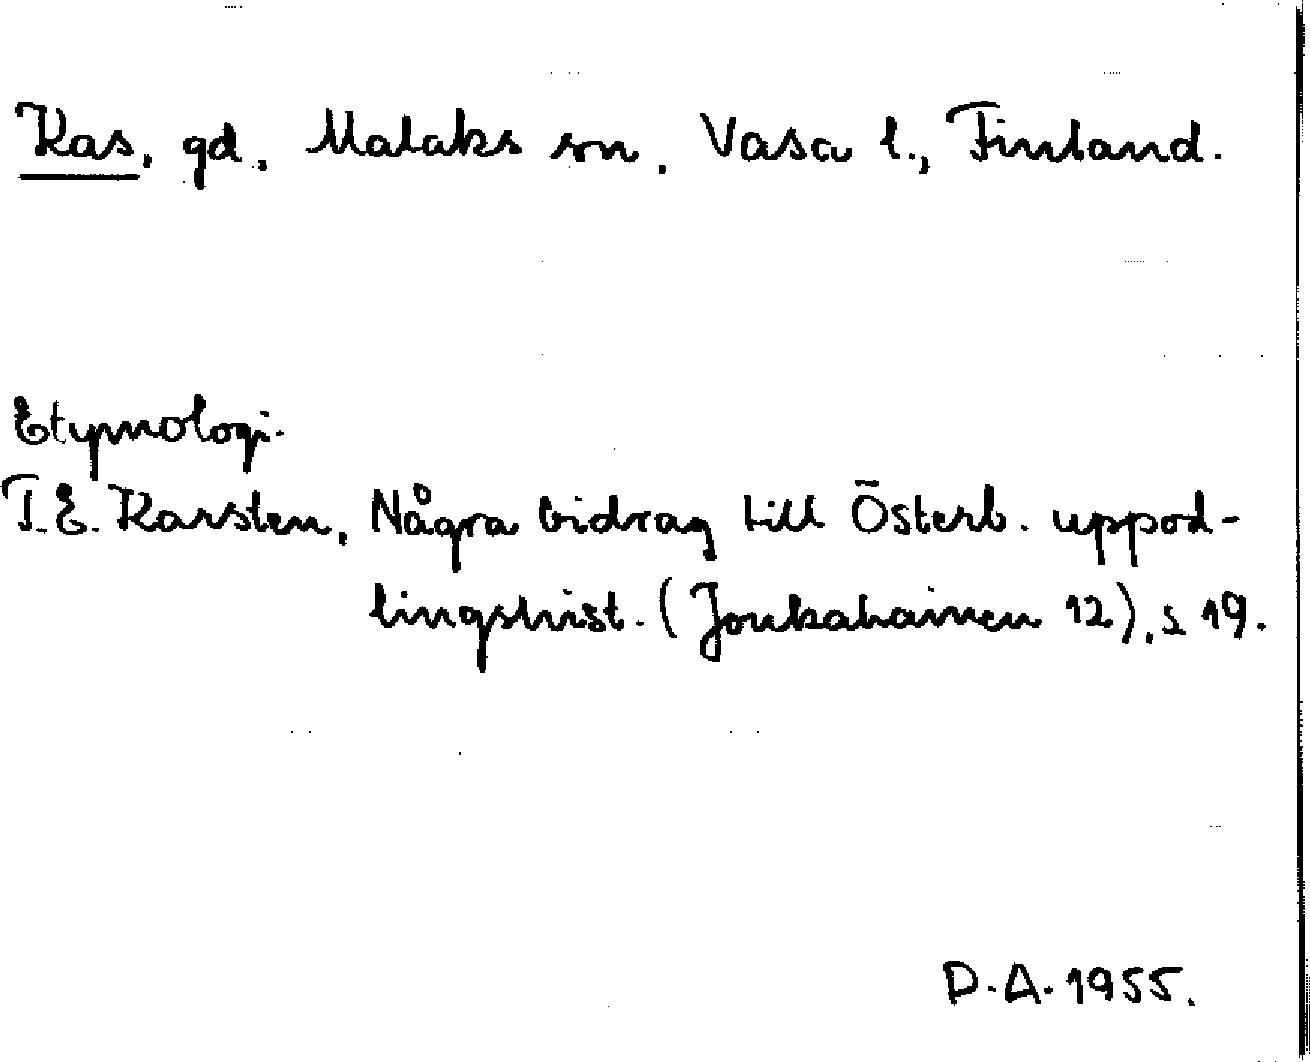 Kas, gd, Malaks sn, Vasa l., Finland.
Etymologi.
T.E. Karsten, Några bidrag till Österb. uppod-
lingshist. (Joukahainen 12), s 19.
D.A. 1955.